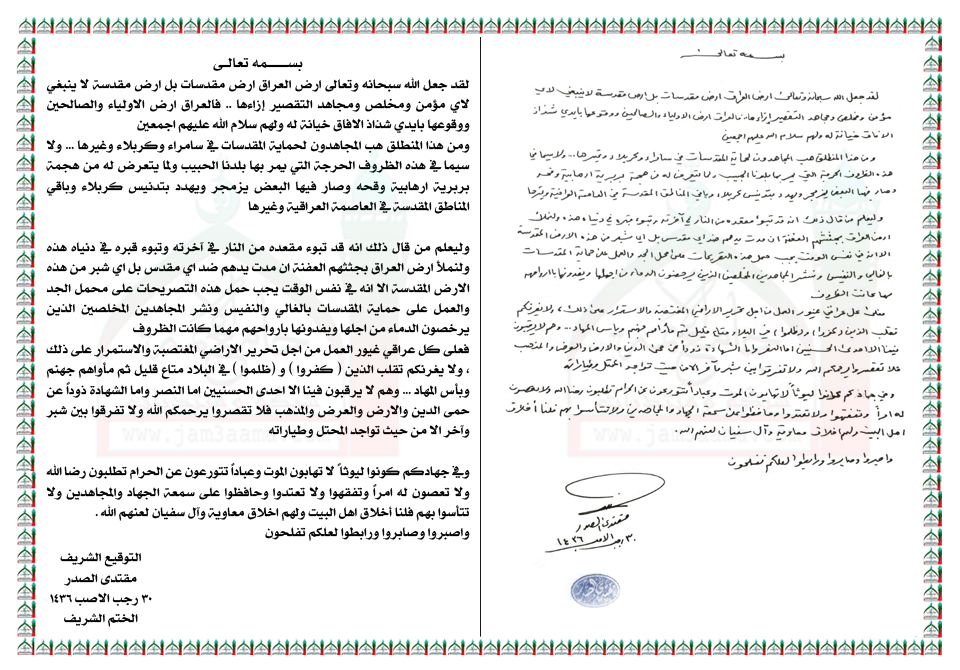 بسمه تعالى
لقد جعل الله سبحانه وتعالى ارض العراق ارض مقدسات بل ارض مقدسة لا ينبغي لاي
مؤمن ومخلص ومجاهد التقصير إزاءها .. فالعراق ارض الاولياء والصالحين ووقوعها بايدي شذاذ
الافاق خيانة له ولهم سلام الله عليهم اجمعين
ومن هذا المنطلق هب المجاهدون لحماية المقدسات في سامراء وكربلاء وغيرها ... ولا سيما في
هذه الظروف الحرجة التي يمر بها بلدنا الحبيب ولما يتعرض له من هجمة بربرية ارهابية وقحه
وصار فيها البعض يزمجر ويهدد بتدنيس كربلاء وباقي المناطق المقدسة في العاصمة العراقية وغيرها
وليعلم من قال ذلك انه قد تبوء مقعده من النار في آخرته وتبوء قبره في دنياه هذه ولنملأ
ارض العراق بجثثهم العفنة ان مدت يدهم ضد اي مقدس بل اي شبر من هذه الارض المقدسة
الا انه في نفس الوقت يجب حمل هذه التصريحات على محمل الجد والعمل على حماية المقدسات
بالغالي والنفيس ونشر المجاهدين المخلصين الذين يرخصون الدماء من اجلها ويفدونها بارواحهم
مهما كانت الظروف
فعلى كل عراقي غيور العمل من اجل تحرير الاراضي المغتصبة والاستمرار على ذلك ، ولا يغرنكم
تقلب الذين (كفروا) و (ظلموا) في البلاد متاع قليل ثم مأواهم جهنم وبأس المهاد ... وهم لا يرقبون
فينا الا احدى الحسنيين اما النصر واما الشهادة ذوداً عن حمى الدين والارض والعرض والمذهب
فلا تقصروا يرحمكم الله ولا تفرقوا بين شبر وآخر الا من حيث تواجد المحتل وطياراته
وفي جهادكم كونوا ليوثاً لا تهابون الموت وعباداً تتورعون عن الحرام تطلبون رضا الله ولا تعصون
له امراً وتفقهوا ولا تعتدوا وحافظوا على سمعة الجهاد والمجاهدين ولا تتأسوا بهم فلنا أخلاق
اهل البيت ولهم اخلاق معاوية وآل سفيان لعنهم الله .
واصبروا وصابروا ورابطوا لعلكم تفلحون
مقتدى الصدر
٣٠ رجب الاصب ١٤٣٦
بســـمه تعالـى
لقد جعل الله سبحانه وتعالى ارض العراق ارض مقدسات بل ارض مقدسة لا ينبغي
لاي مؤمن ومخلص ومجاهد التقصير إزاءها .. فالعراق ارض الاولياء والصالحين
ووقوعها بايدي شذاذ الافاق خيانة له ولهم سلام الله عليهم اجمعين
ومن هذا المنطلق هب المجاهدون لحماية المقدسات في سامراء وكربلاء وغيرها ... ولا
سيما في هذه الظروف الحرجة التي يمر بها بلدنا الحبيب ولما يتعرض له من هجمة
بربرية ارهابية وقحه وصار فيها البعض يزمجر ويهدد بتدنيس كربلاء وباقي
المناطق المقدسة في العاصمة العراقية وغيرها
وليعلم من قال ذلك انه قد تبوء مقعده من النار في آخرته وتبوء قبره في دنياه هذه
ولنملأ ارض العراق بجثثهم العفنة ان مدت يدهم ضد اي مقدس بل اي شبر من هذه
الارض المقدسة الا انه في نفس الوقت يجب حمل هذه التصريحات على محمل الجد
والعمل على حماية المقدسات بالغالي والنفيس ونشر المجاهدين المخلصين الذين
يرخصون الدماء من اجلها ويفدونها بارواحهم مهما كانت الظروف
فعلى كل عراقي غيور العمل من اجل تحرير الاراضي المغتصبة والاستمرار على ذلك
، ولا يغرنكم تقلب الذين ( كفروا ) و ( ظلموا ) في البلاد متاع قليل ثم مأواهم جهنم
وبأس المهاد ... وهم لا يرقبون فينا الا احدى الحسنيين اما النصر واما الشهادة ذوداً عن
حمى الدين والارض والعرض والمذهب فلا تقصروا يرحمكم الله ولا تفرقوا بين شبر
وآخر الا من حيث تواجد المحتل وطياراته
وفي جهادكم كونوا ليوثاً لا تهابون الموت وعباداً تتورعون عن الحرام تطلبون رضا الله
ولا تعصون له امراً وتفقهوا ولا تعتدوا وحافظوا على سمعة الجهاد والمجاهدين ولا
تتأسوا بهم فلنا أخلاق اهل البيت ولهم اخلاق معاوية وآل سفيان لعنهم الله .
واصبروا وصابروا ورابطوا لعلكم تفلحون
التوقيع الشريف
مقتدى الصدر
٣٠ رجب الاصب ١٤٣٦
الختم الشريف